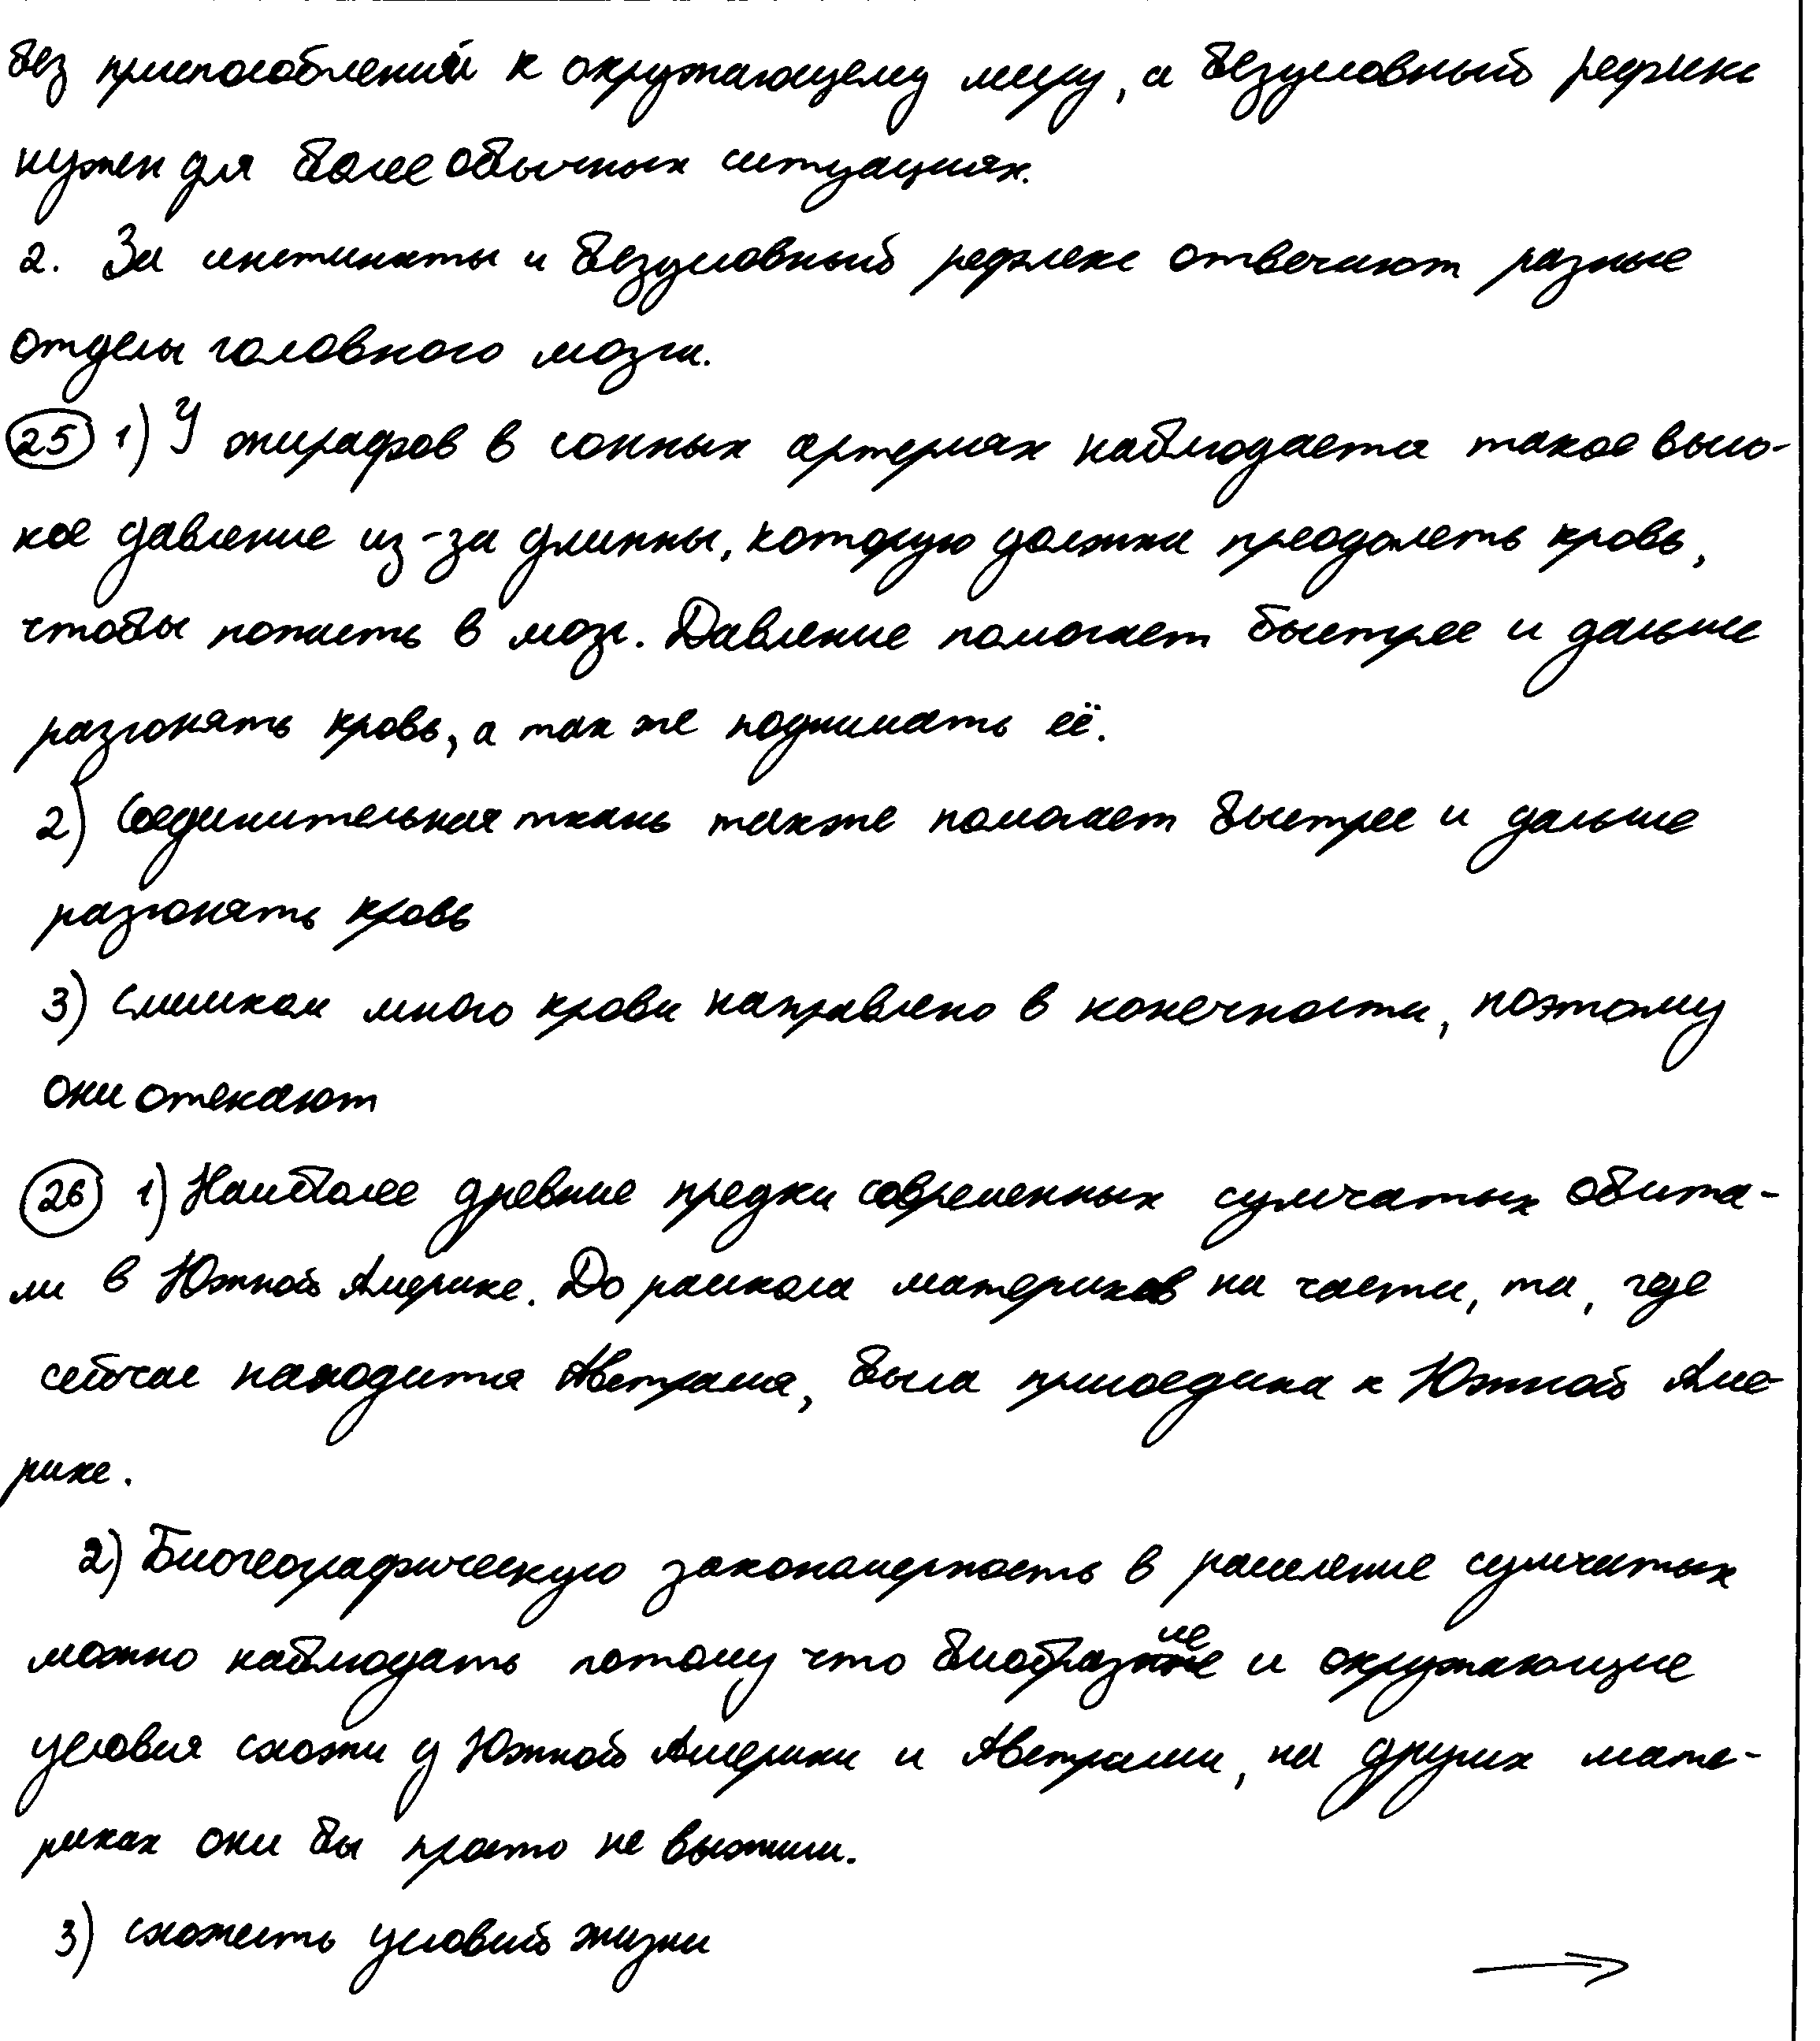 без приспособлений к окружающему миру, а безусловный рефлекс
нужен для более обычных ситуациях.
2. За инстинкты и безусловный рефлекс отвечают разные
отделы головного мозга.
25 1) У жирафов в сонных артериях наблюдается такое высо-
кое давление из-за длинны, которую должна преодолеть кровь,
чтобы попасть в мозг. Давление помогает быстрее и дальше
разгонять кровь, а так же поднимать её.
2) Соединительная ткань также помогает быстрее и дальше
разгонять кровь
3) Слишком много крови направлено в конечности, поэтому
они отекают
26 1) Наиболее древние предки современных сумчатых обита-
ли в Южной Америке. До раскола материков на части, та, где
сейчас находится Австралия, была присоедина к Южной Аме-
рике.
2) Биогеографическую закономерность в расселение сумчатых
можно наблюдать потому что и окружающие
условия схожи у Южной Америки и Австралии, на других мате-
риках они бы просто не выжили.
3) схожесть условий жизни